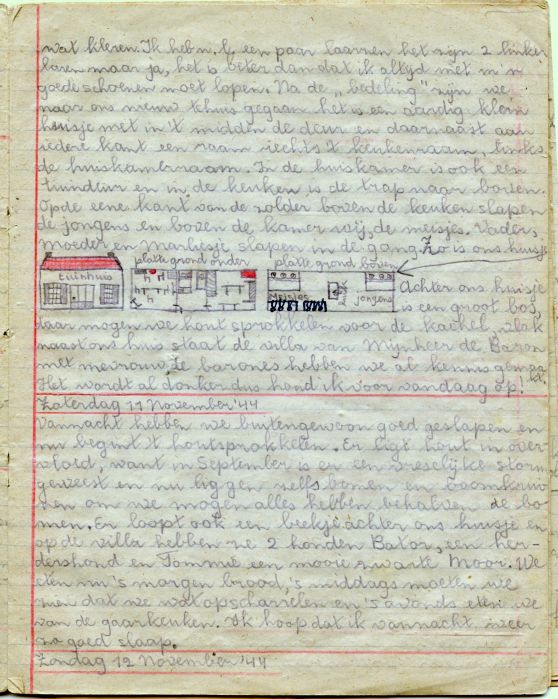 wat kleren. Ik heb n.l. een paar laarzen het zijn 2 linker
laarzen maar ja, het is beter dan dat ik altyd met m'n
goede schoenen moet lopen. Na de „bedeling" zijn we
naar ons nieuw thuis gegaan het is een aardig klein
huisje met in 't midden de deur en daarnaast aan
iedere kant een raam rechts 't keukenraam, links
de huiskamerraam. In de huiskamer is ook een
tuindeur en in de keuken is de trap naar boven.
Op de eene kant van de zolder boven de keuken slapen
de jongens en boven de kamer wij, de meisjes. Vader,
Moeder en Marliesje slapen in de gang. Zo is ons huisje
platte grond onder platte grond boven
Tuinhuis
Meisjes
jongens
Achter ons huisje
is een groot bos,
daar mogen we hout sprokkelen voor de kachel, vlak
naast ons huis staat de villa van Mijnheer de Baron
met mevrouw de barones hebben we al kennis gemaakt.
Het wordt al donker dus houd ik voor vandaag op!
Zaterdag 11 November '44
Vannacht hebben we buitengewoon goed geslapen en
nu begint 't houtsprokkelen. Er ligt hout in over
vloed, want in September is er een vreselijke storm
geweest en nu liggen zelfs bomen en boomkrui
nen om we mogen alles hebben behalve de bo
men. Er loopt ook een beekje achter ons huisje en
op de villa hebben ze 2 honden Bator, een her-
dershond en Tommie een mooie zwarte Moor. We
eten nu 's morgen brood, 's middags moeten we
zien dat we wat opscharrelen en 's avonds eten we
van de gaarkeuken. Ik hoop dat ik vannacht weer
zo goed slaap.
Zondag 12 November '44